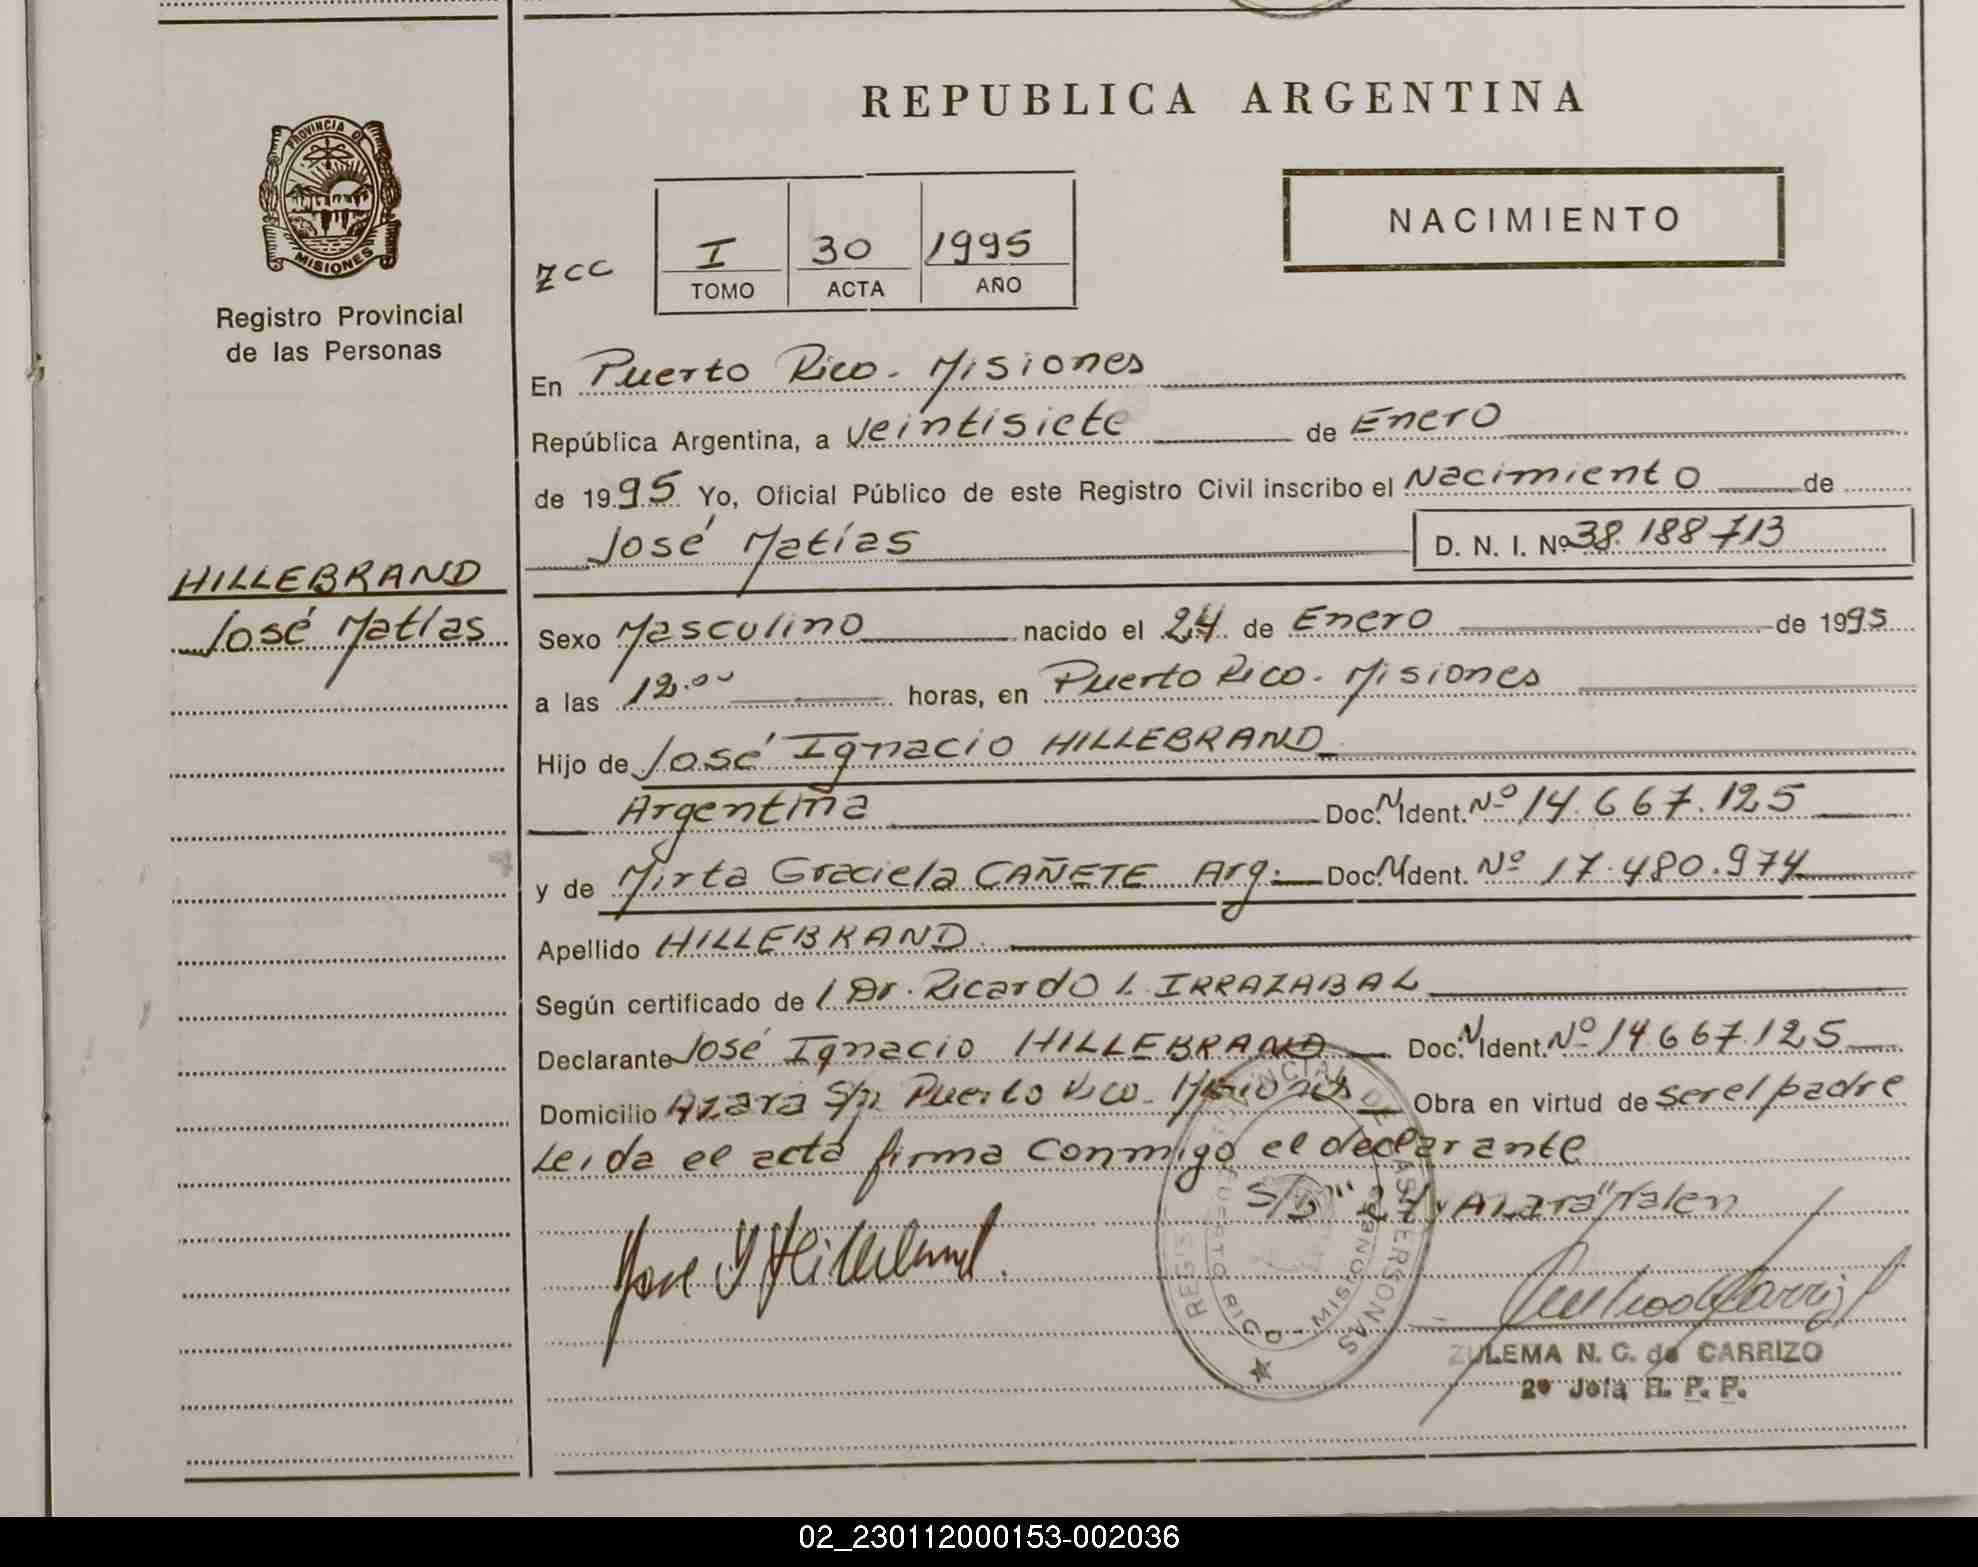 REPUBLICA ARGENTINA
PROVINCIA DE
MISIONES
Registro Provincial
de las Personas
NACIMIENTO
ZCC
I 30 1995
TOMO ACTA AÑO
En Puerto Rico. Misiones
República Argentina, a veintisiete de Enero
de 1995 Yo, Oficial Público de este Registro Civil inscribo el Nacimiento de
José Matías D. N. I. Nº 38.188.713
HILLEBRAND
José Matías
Sexo Masculino nacido el 24 de Enero de 1995
a las 12.00 horas, en Puerto Rico. Misiones
Hijo de José Ignacio HILLEBRAND
Argentina Doc. N. Ident. Nº 14.667.125
y de Mirta Graciela CAÑETE Arg. Doc. N. Ident. Nº 17.480.974
Apellido HILLEBRAND
Según certificado de Dr. Ricardo L. IRRAZABAL
Declarante José Ignacio HILLEBRAND Doc. N. Ident. Nº 14667.125
Domicilio Azara S/n Puerto Rico. Misiones Obra en virtud de ser el padre
Leída el acta firma conmigo el declarante
S/b "24 y Azara" Valen
Jose I Hillebrand.
PERSONAS
PUERTO RICO - MISIONES
ZULEMA N. C. de CARRIZO
2º Jefa R. P. P.
02_230112000153-002036